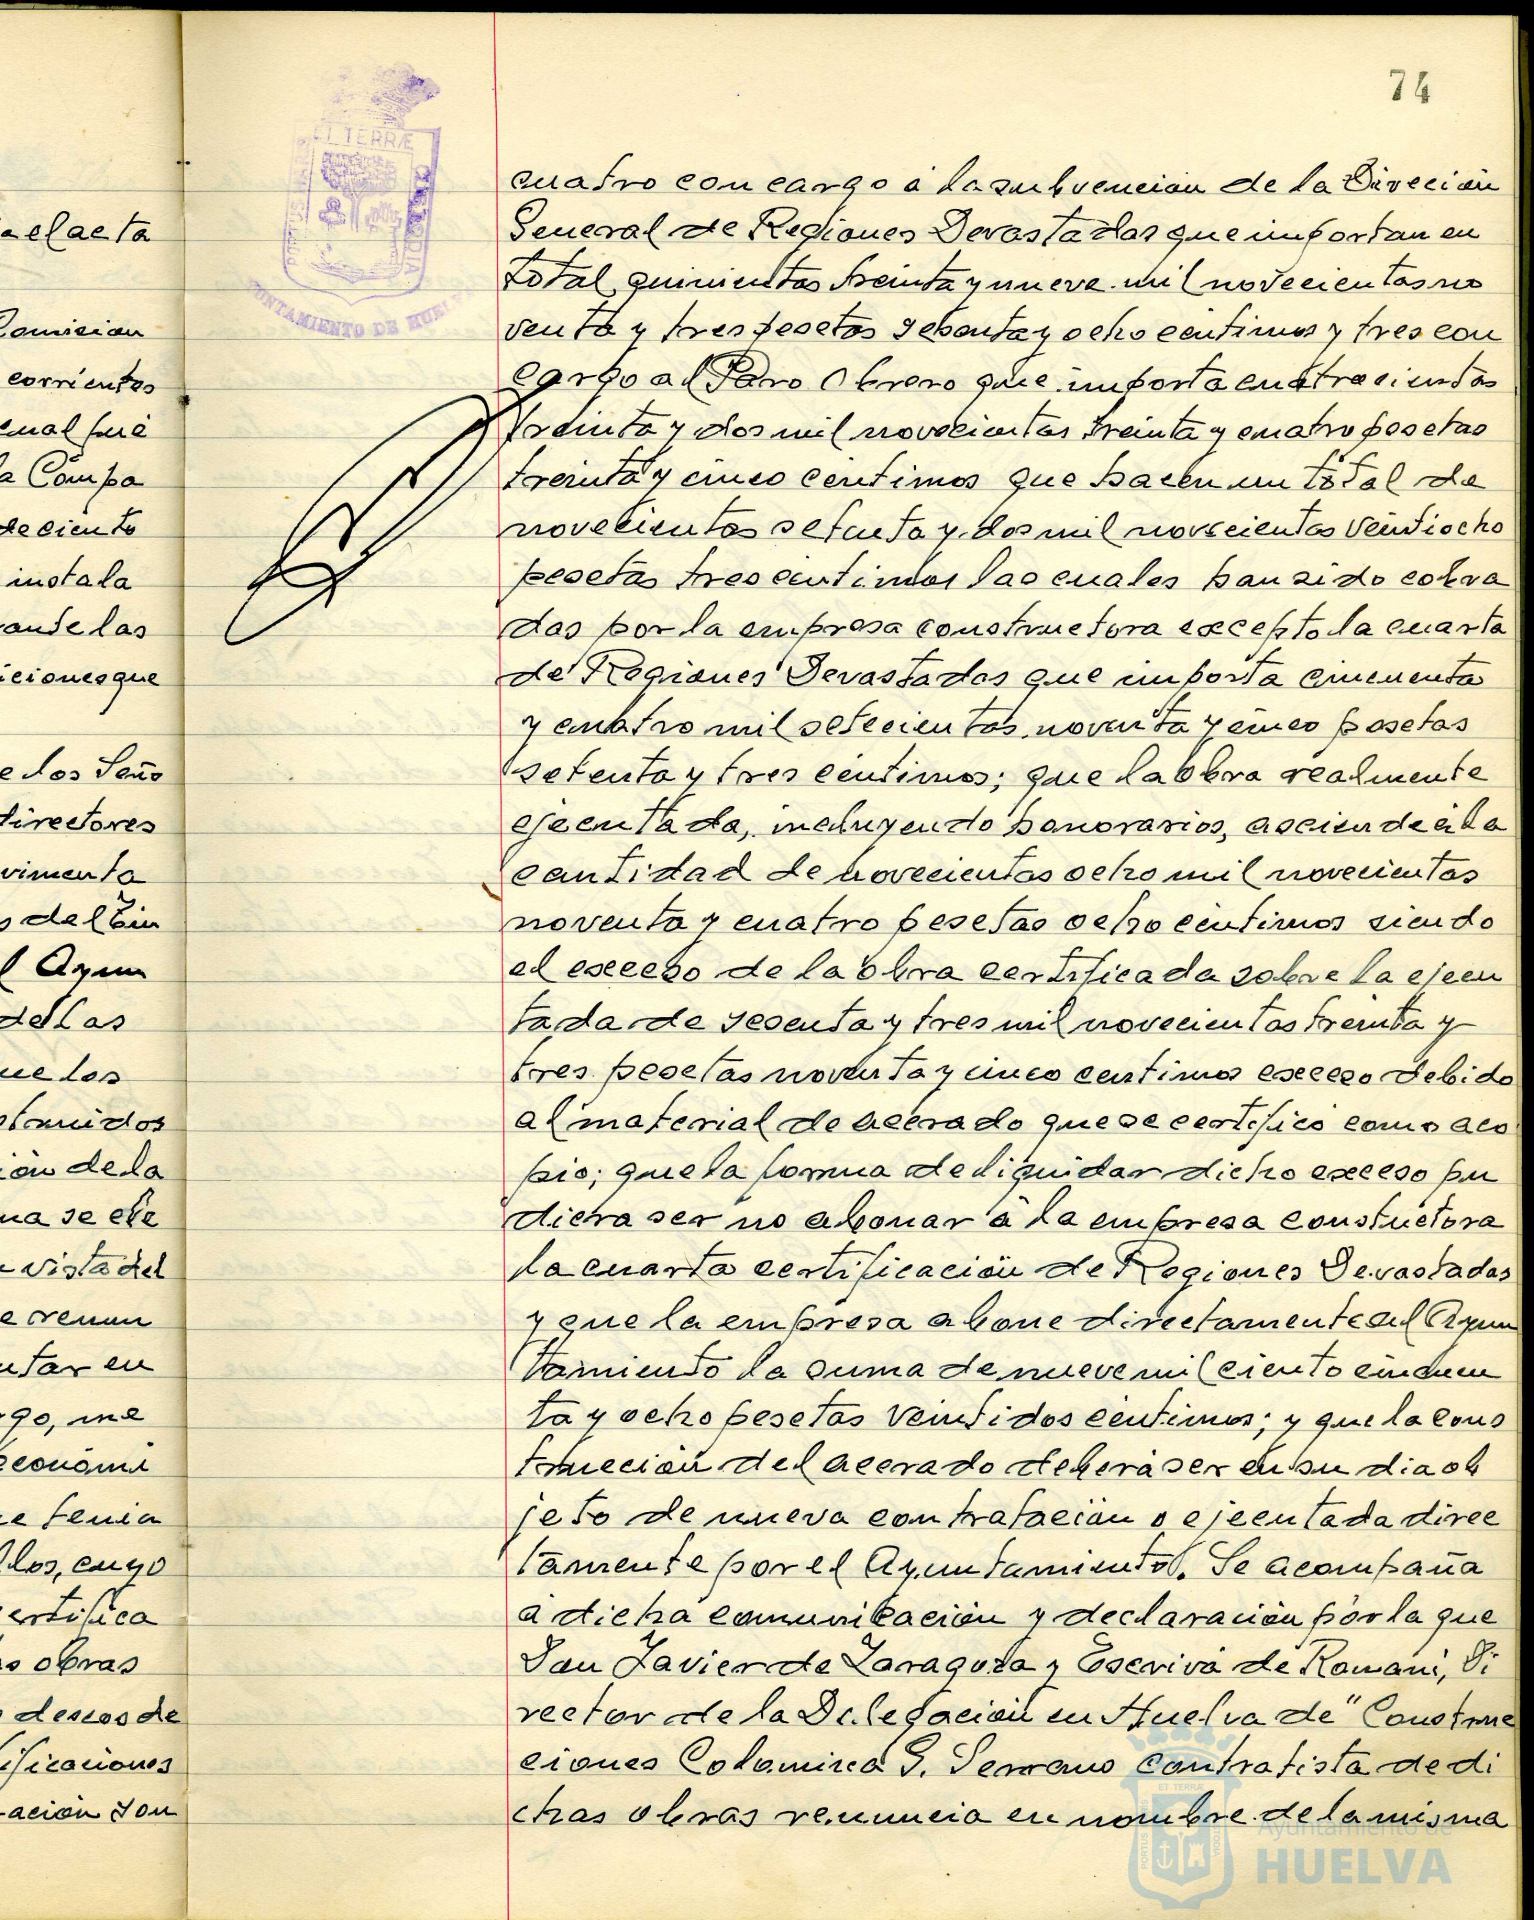 74
cuatro con cargo á la subvención de la Dirección
General de Regiones Devastadas que importan en
total quinientas treinta y nueve mil novecientas no
venta y tres pesetas sesenta y ocho céntimos y tres con
cargo al Paro Obrero que importa cuatrocientas
treinta y dos mil novecientas treinta y cuatro pesetas
treinta y cinco centimos que hacen un total de
novecientas setenta y dos mil novecientas veintiocho
pesetas tres centimos las cuales han sido cobra
das por la empresa constructora excepto la cuarta
de Regiones Devastadas que importa cincuenta
y cuatro mil setecientas noventa y cinco pesetas
setenta y tres céntimos; que la obra realmente
ejecutada, incluyendo honorarios, asciende á la
cantidad de novecientas ocho mil novecientas
noventa y cuatro pesetas ocho céntimos siendo
el exceso de la obra certificada sobre la ejecu
tada de sesenta y tres mil novecientas treinta y
tres pesetas noventa y cinco centimos exceso debido
al material de acerado que se certificó como aco
pio; que la forma de liquidar dicho exceso pu
diera ser no abonar á la empresa constuctora
la cuarta certificación de Regiones Devastadas
y que la empresa abone directamente al Ayun
tamiento la suma de nueve mil ciento cincuen
ta y ocho pesetas veintidos céntimos; y que la cons
trucción del acerado deberá ser en su dia ob
jeto de nueva contratación o ejecutada direc
tamente por el Ayuntamiento. Se acompaña
á dicha comunicación y declaración por la que
Don Javier de Zaragoza y Escrivá de Romani, Di
rector de la Delegación en Huelva de "Construc
ciones Colomina G. Serrano contratista de di
chas obras renuncia en nombre de la misma
a el acta
Comision
corrientes
cual fué
la Compa
de ciento
instala
ante las
iciones que
e los Seño
directores
vimenta
s del Cin
l Ayun
de las
ue los
struidos
ión de la
ma se ele
vista del
e renun
utar en
go, me
económi
e tenia
los, cuyo
ertifica
s obras
deseos de
ificaciones
ación son
ET TERRÆ
PORTUS MARIS
CUSTODIA
AYUNTAMIENTO DE HUELVA
Ayuntamiento de
HUELVA